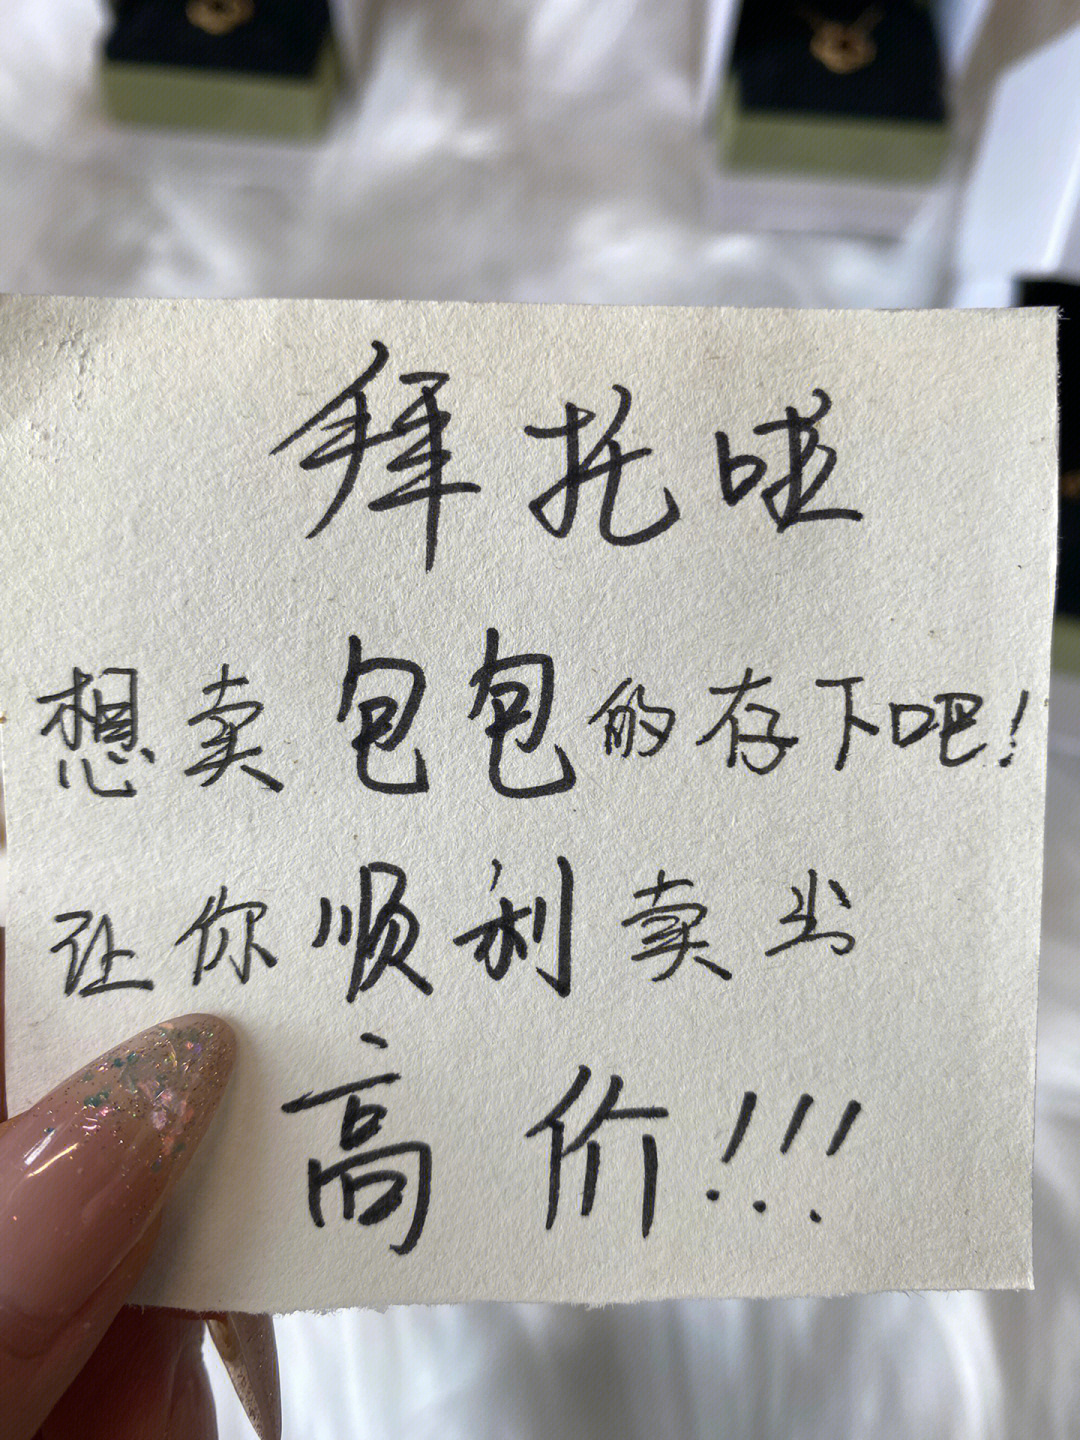 拜托啦
想卖包包的存下吧!
让你顺利卖出
高价!!!